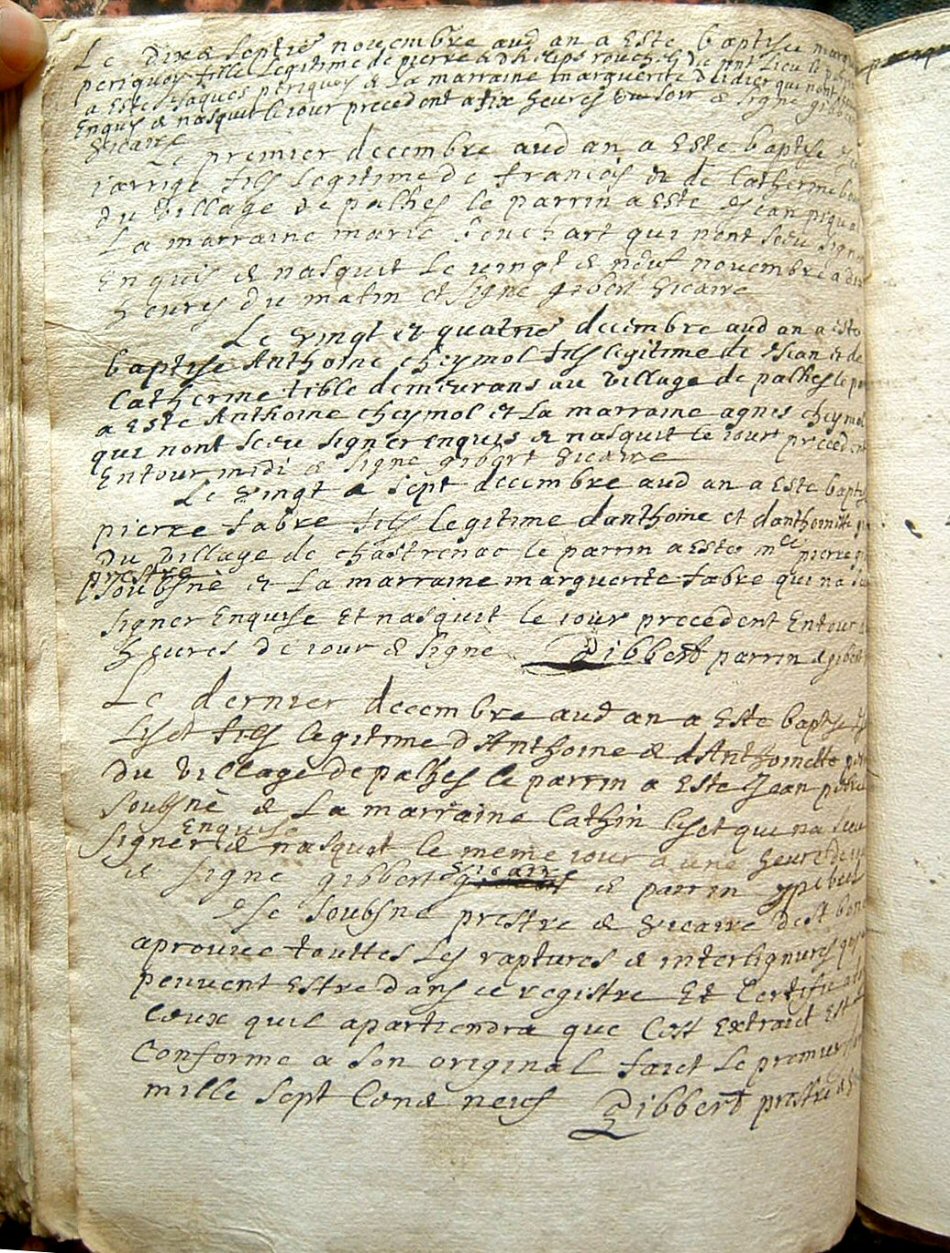 Le dix & septie novembre aud an a este baptisee marg
periquoy fille legitime de pierre &
a este Jaques periquoy & La marraine marguerite didier qui nont
Enquis & nasquit le iour precedent a six heures du soir & signe gibbert
vicaire
Le premier decembre aud an a este baptise
iarrige fils Legitime de francois & de Catherine
du village de palhes le parrin a este Jean
La marraine marie qui nont sceu signer
Enquis & nasquit Le vingt & neuf novembre a dix
heures du matin et signe gibert vicaire
Le vingt et quatrie decembre aud an a este
baptise Anthoine cheymol fils legitime de Jean et de
Catherine tible demeurans au village de palhes le par
a este Anthoine cheymol et La marraine agnes cheymol
qui nont sceu signer enquis & nasquit le iour preceden
Entour midi & signe gibert vicaire
Le vingt & sept decembre aud an a este bapt
pierre fabre fils legitime danthoine et danthoinette
du village de chastrenac le parrin a este mre pierre
prestre
soubsne et La marraine marguerite fabre qui na
signer Enquise Et nasquit le iour precedent Entour
heures de iour & signe Gibbert parrin & gibe
Le dernier decembre aud an a este baptise
Liset fils legitime d'Anthoine & d'Anthoinette
du village de palhes le parrin a este Jean
soubsne & La marraine Cathin liset qui na sceu
Enquise
signer & nasquit le meme iour a une heure de
vicaire
& signe gibbert & parrin
Je soubsne prestre & vicaire de st bon
aprouve touttes les raptures & interlignures qui
peuvent estre dans ce registre Et Certifie a
Ceux quil apartiendra que Cest Extraict Est
Conforme a son original faict le premier
mille sept Cens neuf Gibbert prestre &